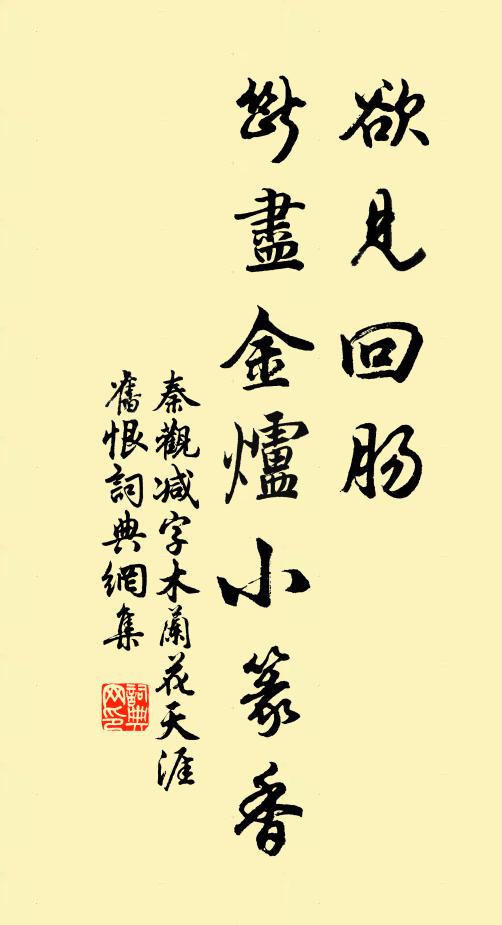 欲見回肠
斷盡金爐小篆香
秦觀减字木蘭花天涯
舊恨詞典網集
詞典
网印